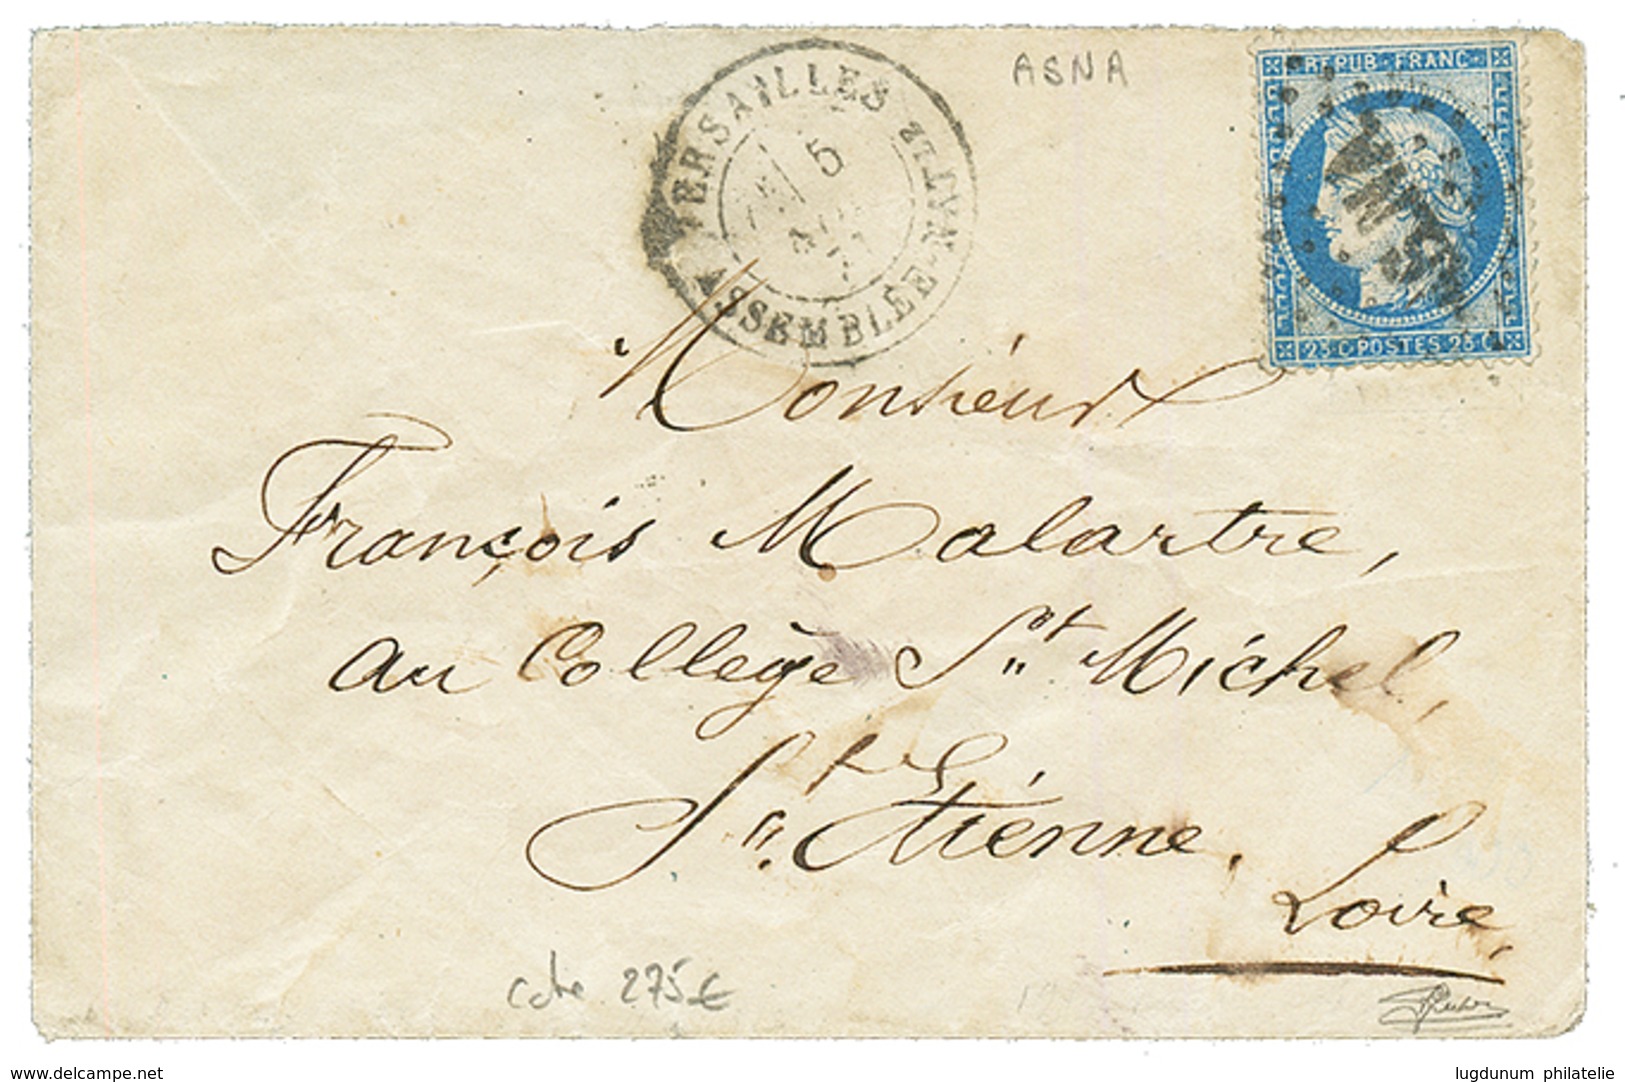 ASNA
VERSAILLES
5
ASSEMBLÉE-NATLE
REPUB·FRANC·
ASNA
25 C POSTES 25 C
Monsieur
François Malartre,
au Collège St Michel,
St Etienne.
Loire,
cote 275€
www.delcampe.net
lugdunum philatelie